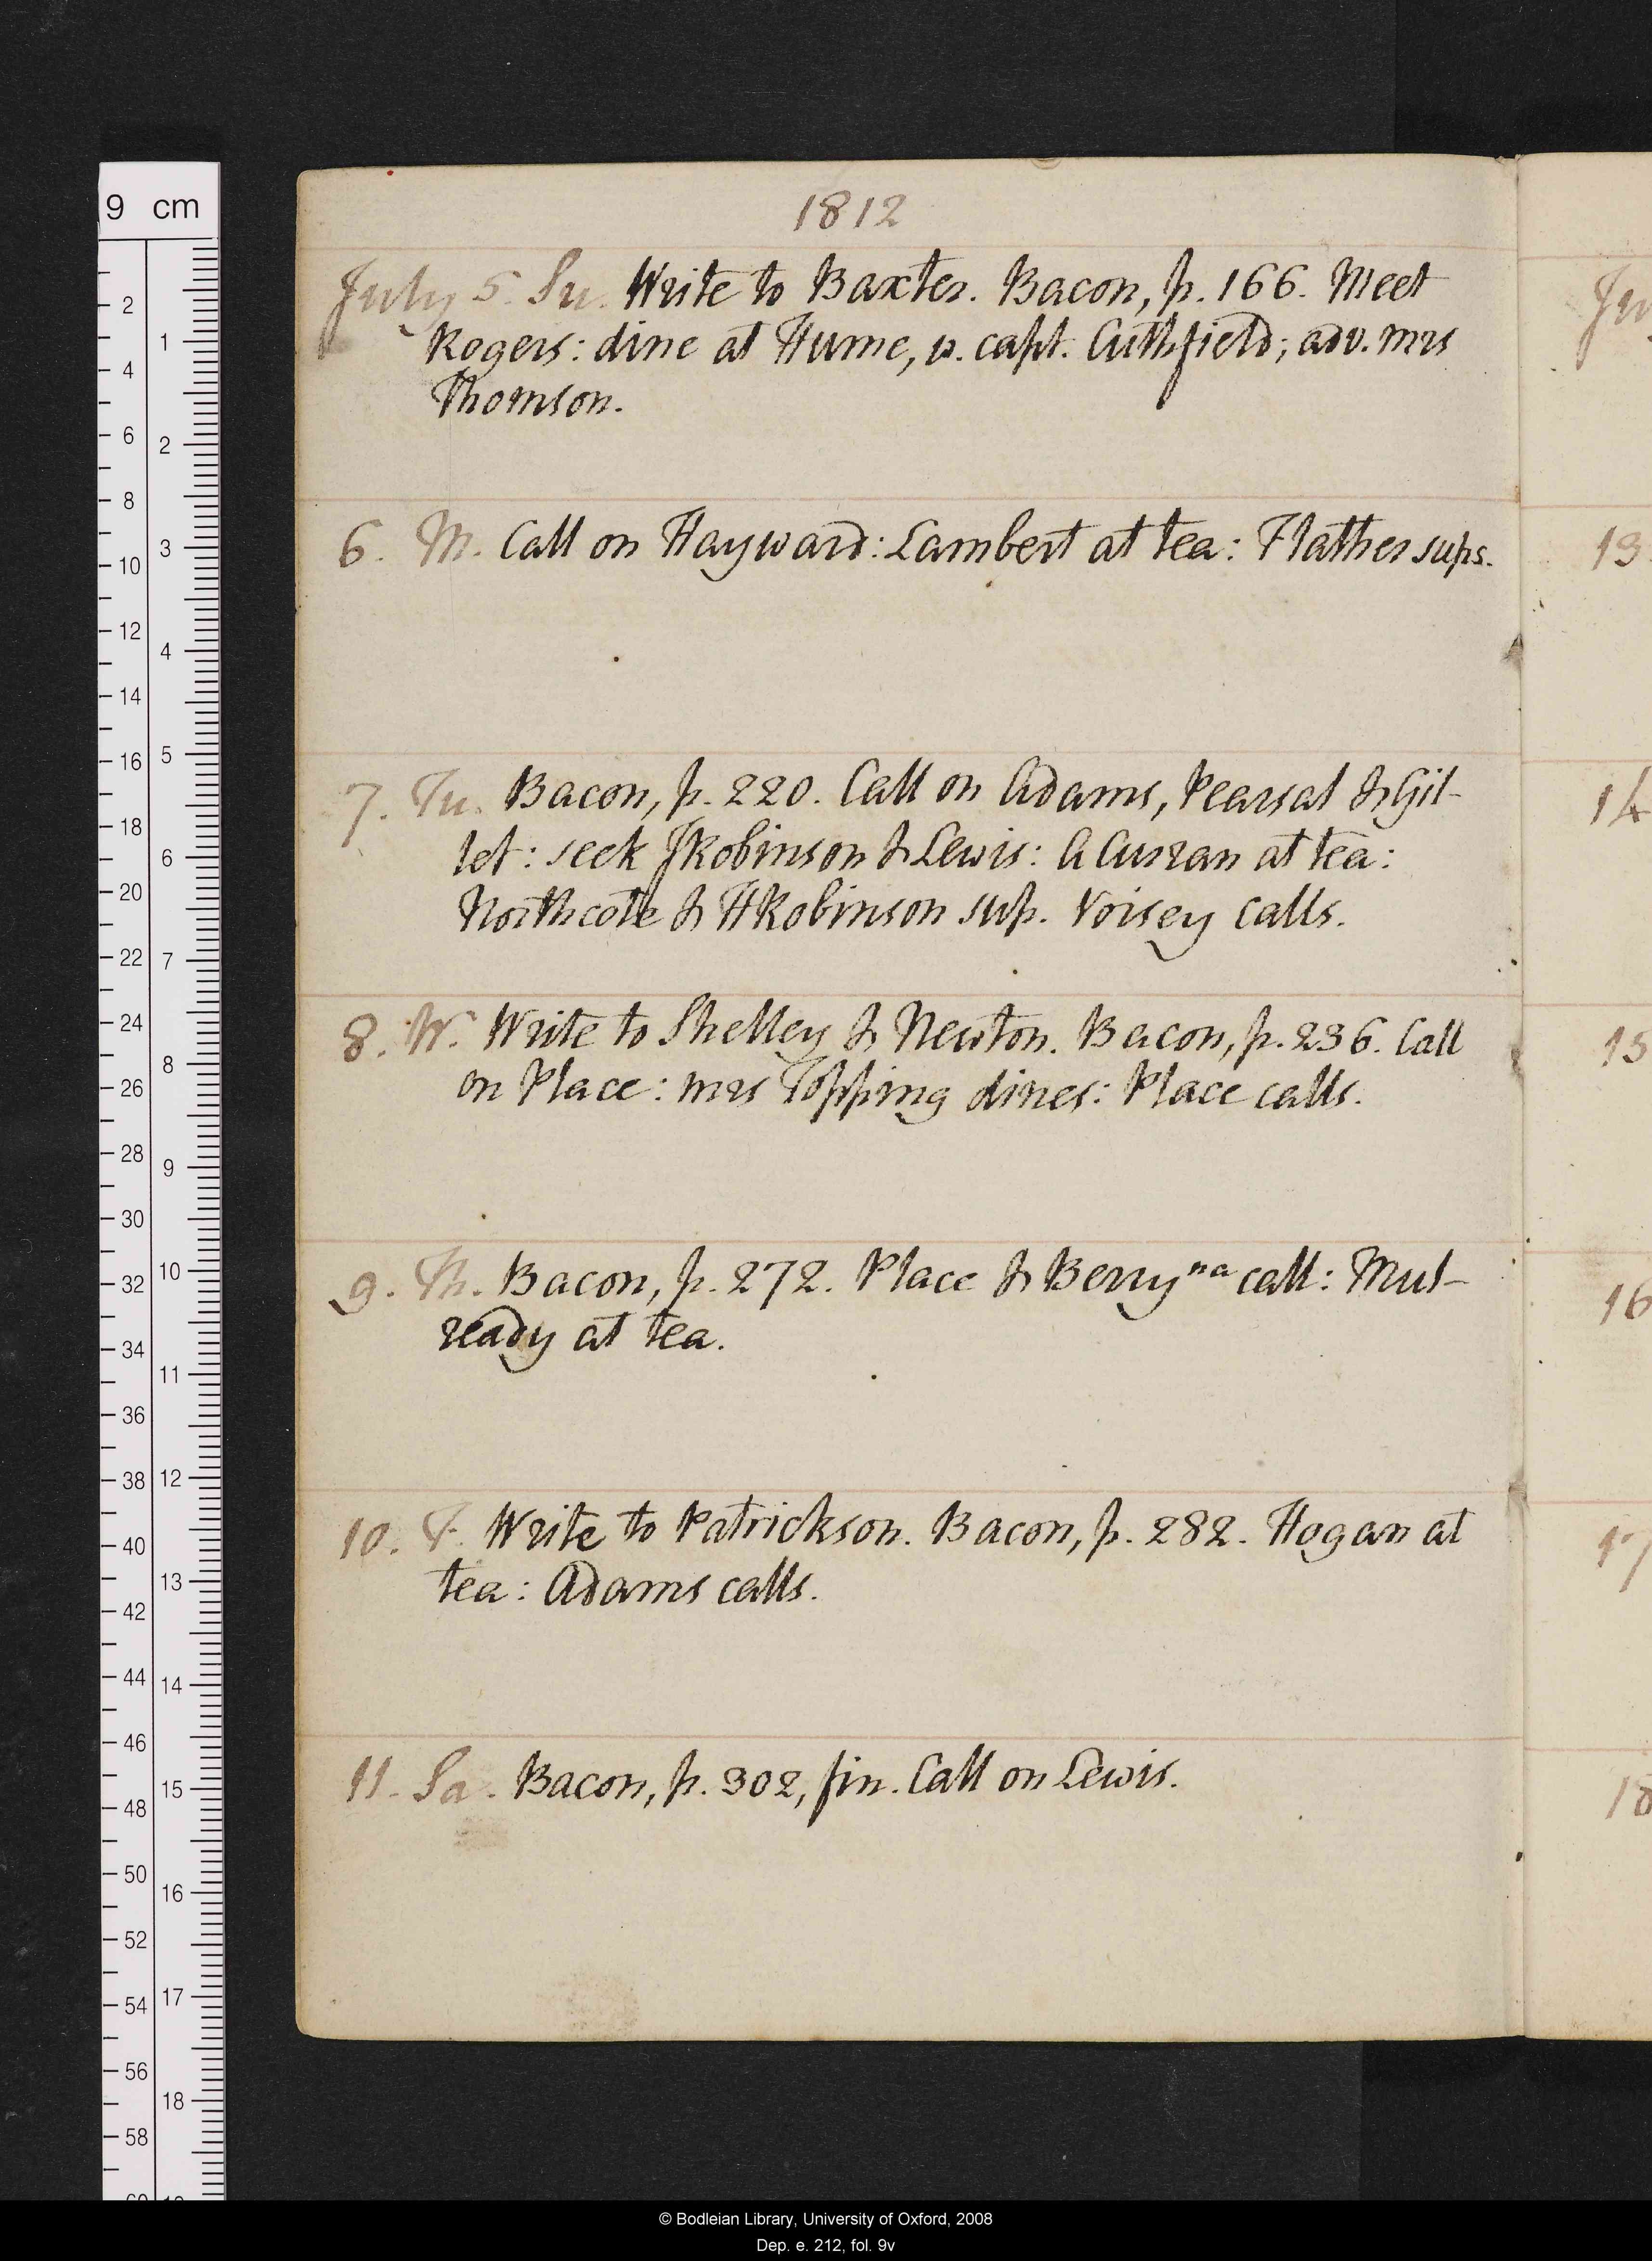 1812
July 5. Su. Write to Baxter. Bacon, p. 166. Meet
Rogers: dine at Hume, w. capt. Cuthfield; adv. mrs
Thomson.
6. M. Call on Hayward: Lambert at tea: Flather sups.
7. Tu. Bacon, p. 220. Call on Adams, Pearsal & Gil-
let: seek JRobinson & Lewis: A Curran at tea:
Northcote & HRobinson sup. Voisey calls.
8. W. Write to Shelley & Newton. Bacon, p. 236. Call
on Place: mrs Topping dines: Place calls.
9. Th. Bacon, p. 272. Place & Berry na call: Mul-
ready at tea.
10. F. Write to Patrickson. Bacon, p. 282. Hogan at
tea: Adams calls.
11. Sa. Bacon, p. 302, fin. Call on Lewis.
Ju
13.
14
15
16
17
18
9 cm
2
4
6
8
10
12
14
16
18
20
22
24
26
28
30
32
34
36
38
40
42
44
46
48
50
52
54
56
58
1
2
3
4
5
6
7
8
9
10
11
12
13
14
15
16
17
18
© Bodleian Library, University of Oxford, 2008
Dep. e. 212, fol. 9v